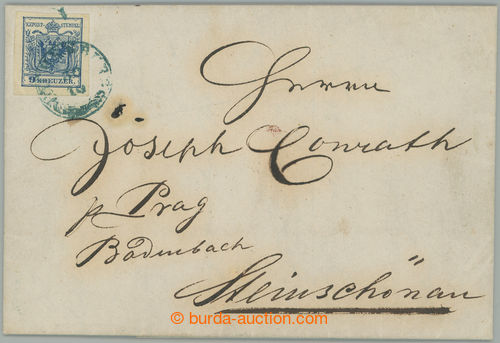 K.K.POST-STEMPEL
9 KREUZER
Herrn
Joseph Conrath
p Prag
Bodenbach
Steinschönau
burda-auction.com